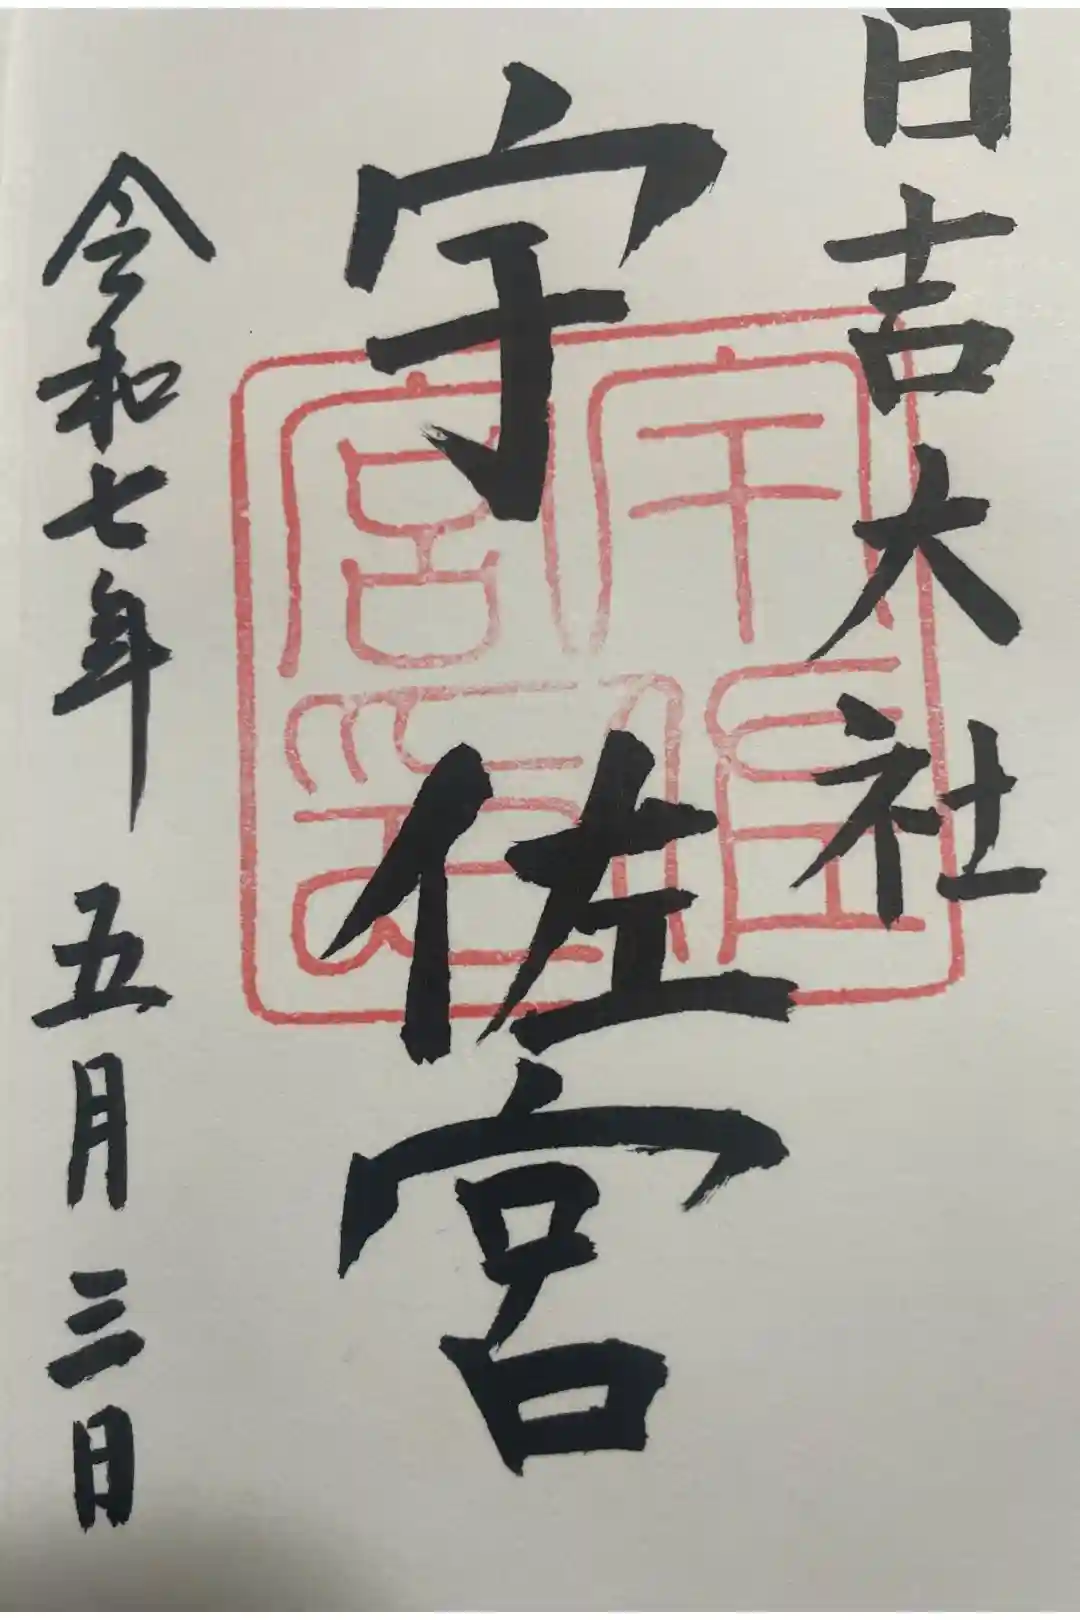 日吉大社
宇佐宮
令和七年 五月三日
宇佐
宮印